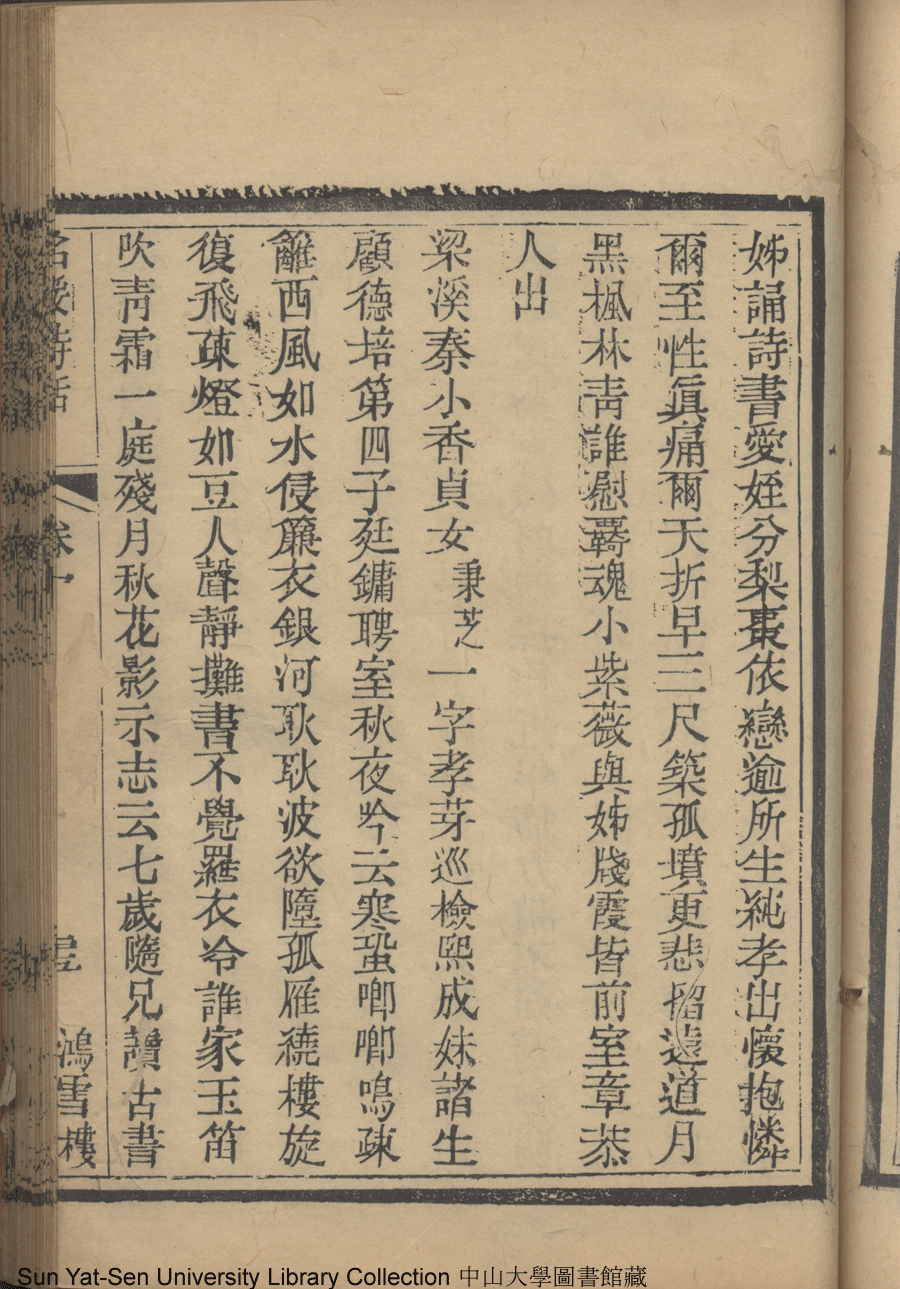 姊誦詩書愛姪分梨棗依戀逾所生純孝出懷抱憐
爾至性眞痛爾天折早三尺築孤墳更悲畱遠道月
黑楓林青誰慰羇魂小紫薇與姊牋霞皆前室章恭
人出
梁溪秦小香貞女秉芝一字孝芽巡檢熙成妹諸生
顧德培第四子廷鏞聘室秋夜吟云寒蛩唧唧鳴疎
籬西風如水侵簾衣銀河耿耿波欲墮孤雁繞樓旋
復飛疎燈如豆人聲靜攤書不覺羅衣冷誰家玉笛
吹靑霜一庭殘月秋花影示志云七歲隨兄讀古書
名媛詩話
卷十
鴻雪樓
Sun Yat-Sen University Library Collection 中山大學圖書館藏